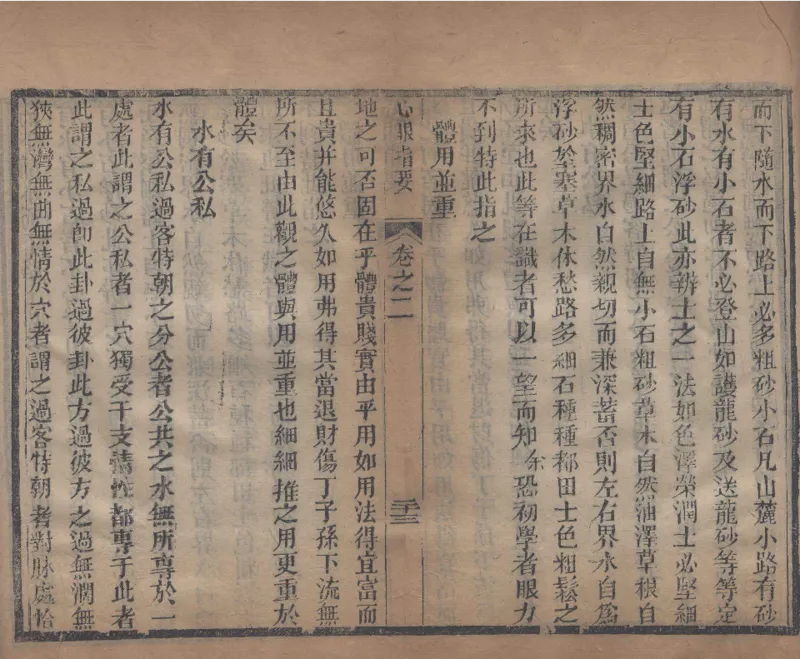 而下隨水而下路上必多粗砂小石凡山麓小路有砂
有水有小石者不必登山如護龍砂及送龍砂等等定
有小石浮砂此亦辨土之一法如色澤榮潤土必堅細
土色堅細路上自無小石粗砂草木自然油澤草根自
然稠密界水自然親切而兼深蓄否則左右界水自爲
浮砂於塞草木休愁路多細石種種都田土色粗鬆之
所來也此等在識者可以一望而知余恐初學者眼力
不到特此指之
體用並重
心眼指要
卷之二
三十三
地之可否固在乎體貴賤實由乎用如用法得宜富而
且貴并能悠久如用弗得其當退財傷丁子孫下流無
所不至由此觀之體與用並重也細細推之用更重於
體矣
水有公私
水有公私過客特朝之分公者公共之水無所專於一
處者此謂之公私者一穴獨受干支情性都專于此者
此謂之私過卽此卦過彼卦此方過彼方之過無澗無
狹無灣無曲無情於穴者謂之過客特朝者對脉處恰